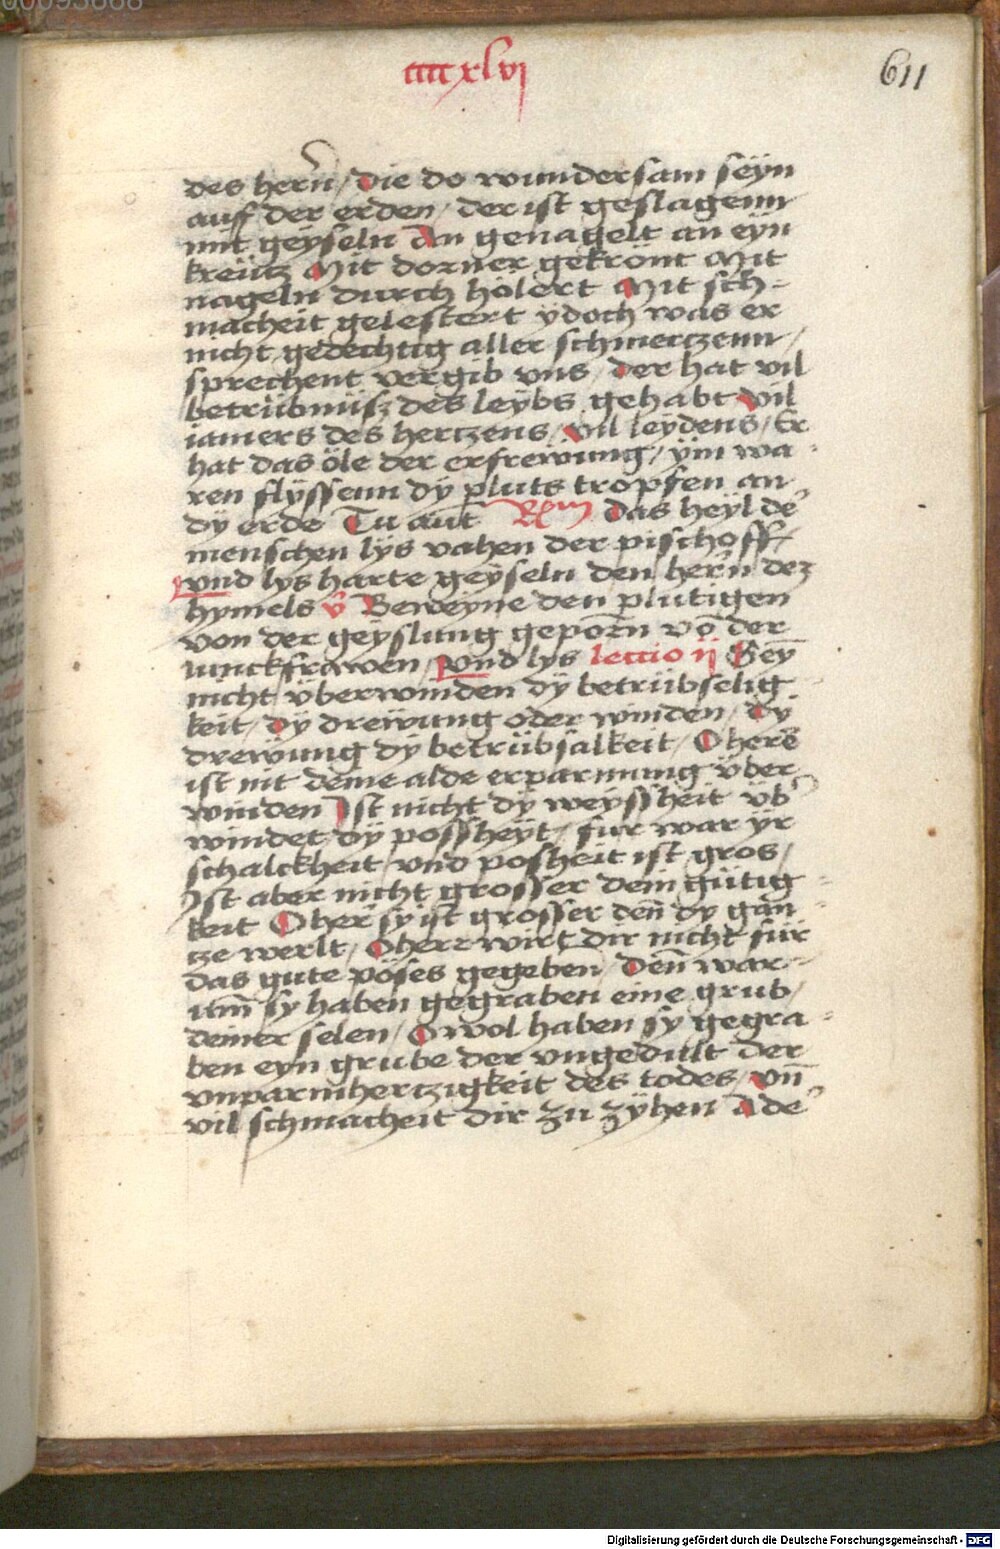 00095868
ccccxlvi
611
des herñ / Die do wundersam seÿn
auff der erden / der ist geslagenn
mit geÿseln An genagelt an eÿn
kreütz Mit dorner gekront Mit
nageln durch hölert Mit sch-
macheit gelestert ÿdoch was er
nicht gedechtig aller schmertzenn /
sprechent vergib vns / der hat vil
betrübnüsz des leÿbs gehabt vil
iamers des hertzens / vil leÿdens / Er
hat das öle der erfreẅung / ÿm wa-
ren flÿssenn dÿ pluts tropfen an
dÿ erde Tu aut̄ Rm Das heÿl de᷑
menschen lÿs vahen der pischoff /
vnd lys harte geÿseln den herñ dez
hymels v̂ Beweÿne den plutigen
von der geÿslung geporñ vō der
iunckfrawen / vnd lys lectio ij Seȳ
nicht vberwinden dÿ betrübselig
keit / dÿ dreẅung oder winden / dÿ
dreẅung dÿ betrübsalkeit / O herē
ist nit deine alde erparmung über
winden Ist nicht dÿ weÿssheit üb᷑
windet / dÿ possheÿt / fur war yr
schalckheit / vnd posheit ist gros /
Ist aber nicht grosser dein gütig-
keit O her sy ist grosser deñ dy gan-
tze werlt / O herr wirt dir nicht für
das gute pöses gegeben / Deñ war-
um̄ sy haben gegraben eine grub /
deiner selen / O wol haben sy gegra-
ben eyn grube der vngedult der
vnparmhertzigkeit des todes / vn̄
vil schmacheit dir zu zÿhen A de᷑
Digitalisierung gefördert durch die Deutsche Forschungsgemeinschaft - DFG